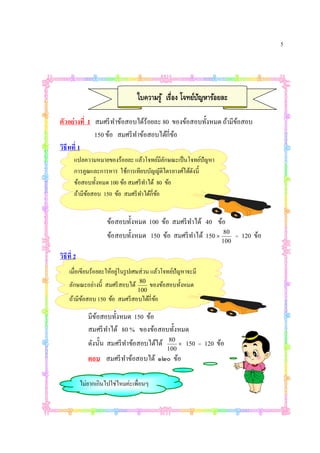 5
ใบความรู้ เรื่อง โจทย์ปัญหาร้อยละ
ตัวอย่างที่ 1 สมศรีทำข้อสอบได้ร้อยละ 80 ของข้อสอบทั้งหมด ถ้ามีข้อสอบ
150 ข้อ สมศรีทำข้อสอบได้กี่ข้อ
วิธีที่ 1
แปลความหมายของร้อยละ แล้วโจทย์มีลักษณะเป็นโจทย์ปัญหา
การคูณและการหาร ใช้การเทียบบัญญัติไตรยางศ์ได้ดังนี้
ข้อสอบทั้งหมด 100 ข้อ สมศรีทำได้ 80 ข้อ
ถ้ามีข้อสอบ 150 ข้อ สมศรีทำได้กี่ข้อ
ข้อสอบทั้งหมด 100 ข้อ สมศรีทำได้ 40 ข้อ
ข้อสอบทั้งหมด 150 ข้อ สมศรีทำได้ 150 × 80/100 = 120 ข้อ
วิธีที่ 2
เมื่อเขียนร้อยละให้อยู่ในรูปเศษส่วน แล้วโจทย์ปัญหาจะมี
ลักษณะอย่างนี้ สมศรีสอบได้ 80/100 ของข้อสอบทั้งหมด
ถ้ามีข้อสอบ 150 ข้อ สมศรีสอบได้กี่ข้อ
มีข้อสอบทั้งหมด 150 ข้อ
สมศรีทำได้ 80 % ของข้อสอบทั้งหมด
ดังนั้น สมศรีทำข้อสอบได้ได้ 80/100 × 150 = 120 ข้อ
ตอบ สมศรีทำข้อสอบได้ ๑๒๐ ข้อ
ไม่ยากเกินไปใช่ไหมค่ะเพื่อนๆ